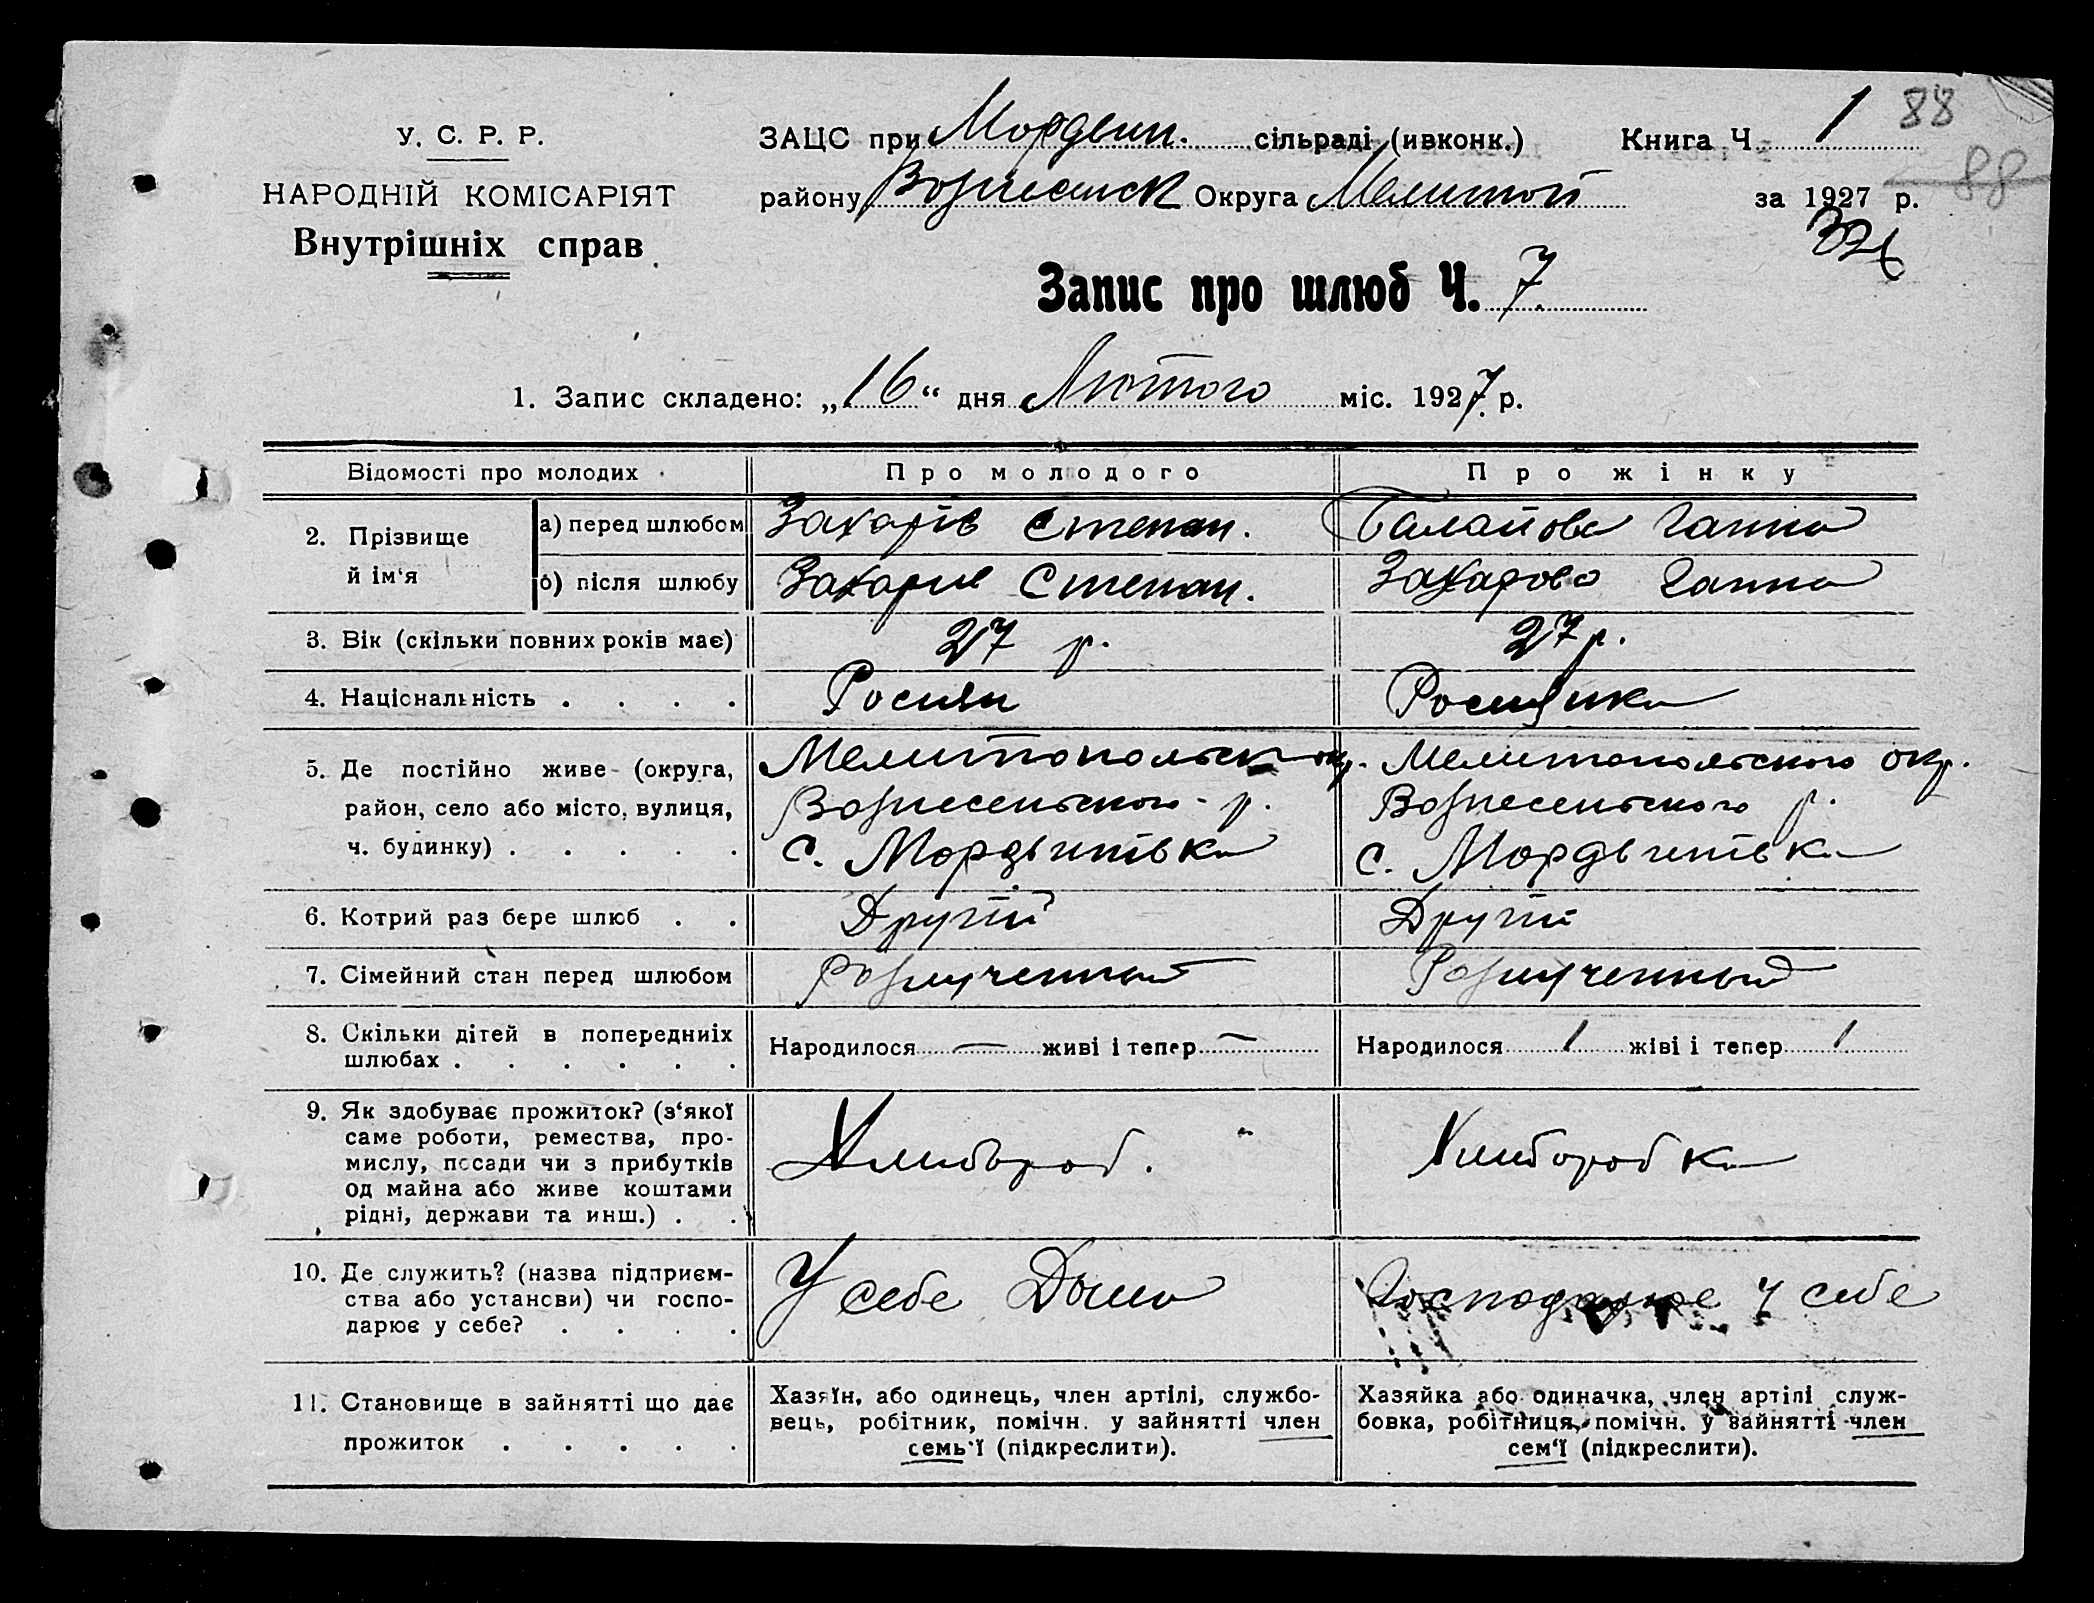 88
У. С. Р. Р. ЗАЦС при Мордвин. сільраді (ивконк.) Книга Ч 1
88
НАРОДНІЙ КОМІСАРІЯТ району Вознесенск Округа Мелитоп за 1927 р.
Внутрішніх справ
Запис про шлюб Ч. 7
1. Запис складено: „16“ дня Лютого міс. 1927 р.
Відомості про молодих Про молодого Про жінку
2. Прізвище й ім‘я
а) перед шлюбом Захарів Степан. Балайова Ганна
б) після шлюбу Захарив Степан. Захарова Ганна
3. Вік (скільки повних років має) 27 р. 27 р.
4. Націснальність . . . . Росиян Росиянка
5. Де постійно живе (округа,
район, село або місто, вулиця,
ч. будинку) . . . . .
Мелитопольск окр.
Вознесенського р.
с. Мордвинівка
Мелитопольского окр.
Вознесенського р.
с. Мордвинівка
6. Котрий раз бере шлюб . . Другий Другий
7. Сімейний стан перед шлюбом Розлученный Розлученный
8. Скільки дітей в попередниіх
шлюбах . . . . . .
Народилося — живі і тепер —
Народилося 1 жіві і тепер 1
9. Як здобуває прожиток? (з‘якої
саме роботи, ремества, про-
мислу, посади чи з прибутків
од майна або живе коштами
рідні, держави та инш.) . .
Хлибороб.
Хлиборобка
10. Де служить? (назва підприєм-
ства або установи) чи госпо-
дарює у себе? . . . .
У себе Дома
Господарює у себе
11. Становище в зайнятті що дає
прожиток . . . . .
Хазяїн, або одинець, член артілі, службо-
вець, робітник, помічн. у зайнятті член
семь‘ї (підкреслити).
Хазяйка або одиначка, член артілі служ-
бовка, робітниця, помічн. у зайнятті член
сем‘ї (підкреслити).